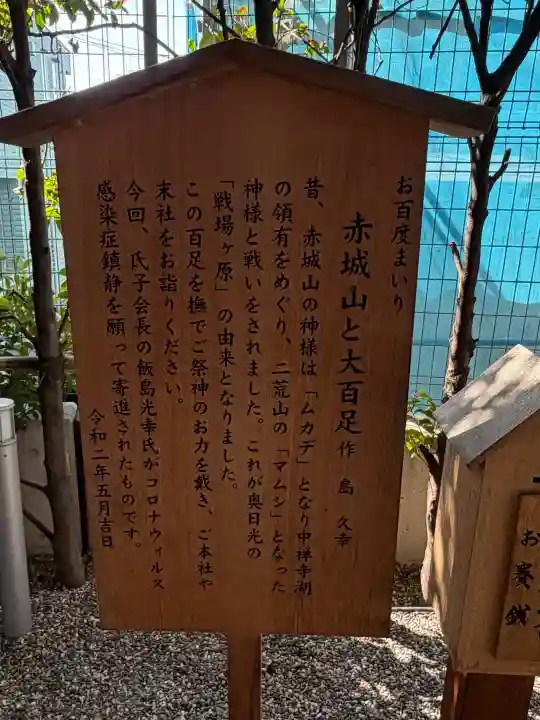 お百度まいり
赤城山と大百足 作 島 久幸
昔、赤城山の神様は「ムカデ」となり中禅寺湖
の領有をめぐり、二荒山の「マムシ」となった
神様と戦いをされました。これが奥日光の
「戦場ヶ原」の由来となりました。
この百足を撫でご祭神のお力を戴き、ご本社や
末社をお詣りください。
今回、氏子会長の飯島光幸氏がコロナウィルス
感染症鎮静を願って寄進されたものです。
令和二年五月吉日
お賽銭